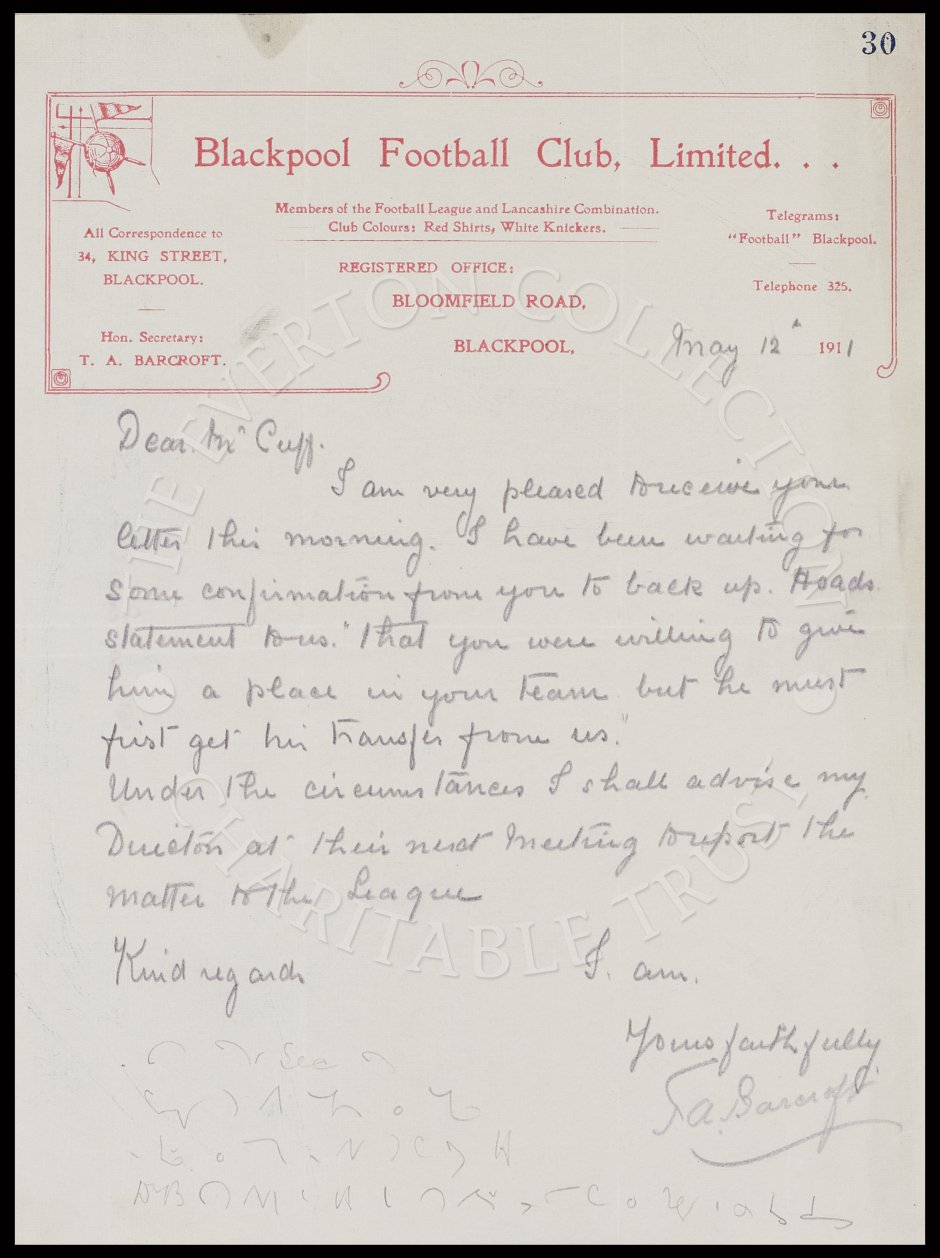 30
Blackpool Football Club, Limited. . .
Members of the Football League and Lancashire Combination.
Club Colours: Red Shirts, White Knickers.
All Correspondence to
34, KING STREET,
BLACKPOOL.
Hon. Secretary:
T. A. BARCROFT.
Telegrams:
"Football" Blackpool.
Telephone 325.
REGISTERED OFFICE:
BLOOMFIELD ROAD,
BLACKPOOL,
May 12th 1911
Dear Mr Cuff.
I am very pleased to receive your
letter this morning. I have been waiting for
some confirmation from you to back up. Hoads
statement to us. "That you were willing to give
him a place in your team but he must
first get his transfer from us."
Under the circumstances I shall advise my
Directors at their next Meeting to report the
matter to the League
Kind regards
I. am.
Yours faithfully
T.A. Barcroft
THE EVERTON COLLECTION
CHARITABLE TRUST